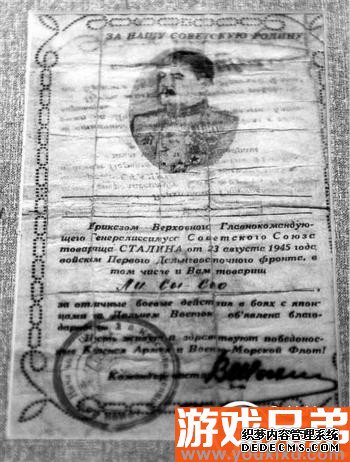 ЗА НАШУ СОВЕТСКУЮ РОДИНУ
Приказом Верховного Главнокомандую-
щего Генералиссимуса Советского Союза
товарища СТАЛИНА от 23 августа 1945 года,
войскам Первого Дальневосточного фронта, в
том числе и Вам товарищ
Ли
за отличные боевые действия в боях с япон-
цами на Дальнем Востоке об'явлена благо-
дарность
Пусть живут и здравствуют победонос-
Красная Армия и Военно-Морской Флот!
游戏兄弟
织梦内容管理系统
DEDECMS.COM
www.youxixd.com